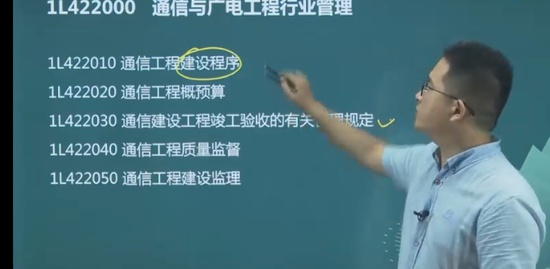 1L422000 通信与广电工程行业管理
1L422010 通信工程建设程序
1L422020 通信工程概预算
1L422030 通信建设工程竣工验收的有关管理规定
1L422040 通信工程质量监督
1L422050 通信工程建设监理